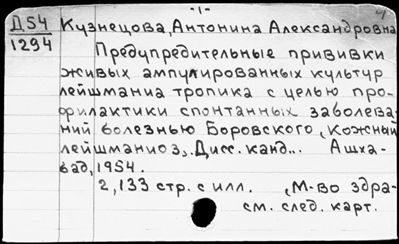 -1-
4
Д54 Кузнецова, Антонина Александровна
1294
Предупредительные прививки
живых ампулированных культур
лейшмания тропика с целью про-
филактики спонтанных заболева-
ний болезнью Боровского (Кожный
лейшманиоз). Дисс. канд... Ашха-
бад, 1954.
2, 133 стр. с илл. (М-во здра-
см. след. карт.